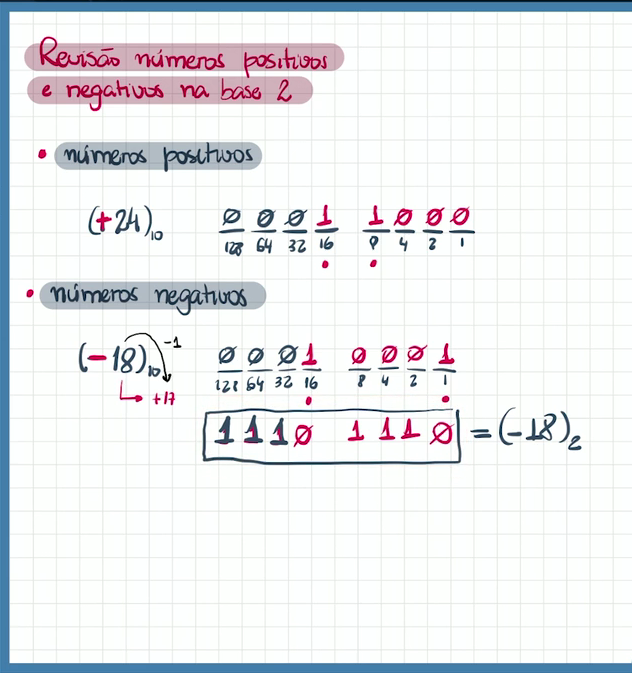 Revisão números positivos
e negativos na base 2
• números positivos
(+24)₁₀ 0 0 0 1 1 0 0 0
128 64 32 16 8 4 2 1
• números negativos
(-18)₁₀ -1 0 0 0 1 0 0 0 1
128 64 32 16 8 4 2 1
↳ +17
1 1 1 0 1 1 1 0 = (-18)₂